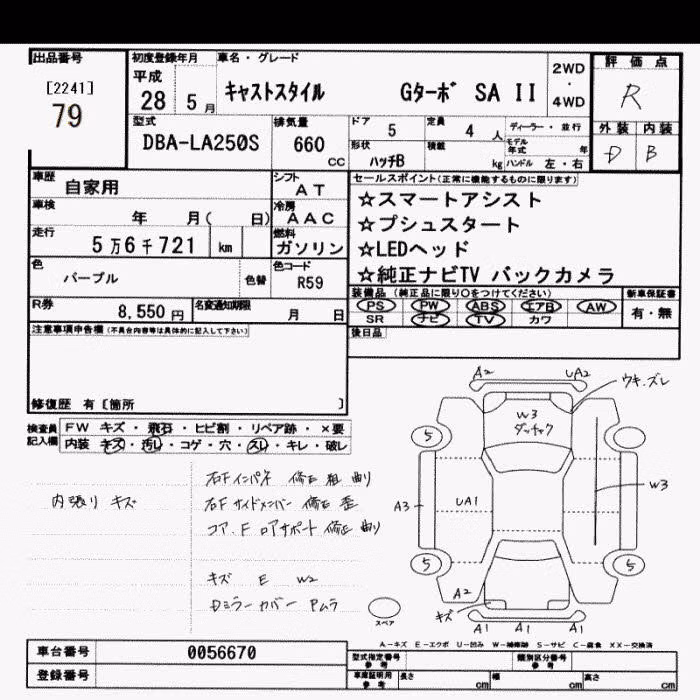 出品番号
[2241]
79
初度登録年月
平成
28 5月
車名・グレード
キャストスタイル Gターボ SA II
2WD
・
4WD
評価点
R
外装 内装
D B
型式
DBA-LA250S
排気量
660
CC
ドア
5
定員
4 人
ディーラー・並行
形状
ハッチB
積載
kg
モデル年式 年
ハンドル 左・右
車歴
自家用
シフト
AT
車検
年 月( 日)
冷房
AAC
走行
5万6千721 km
燃料
ガソリン
色
パープル
色替
色コード
R59
R券
8,550円
名変通知期限
月 日
セールスポイント(正常に機能するものに限ります)
☆スマートアシスト
☆プシュスタート
☆LEDヘッド
☆純正ナビTV バックカメラ
装備品(純正品に限り〇をつけてください)
新車保証書
PS PW ABS エアB AW
SR ナビ TV カワ
有・無
後日品
注意事項申告欄(不具合内容等は具体的に記入して下さい)
修復歴 有〔箇所 〕
検査員
記入欄
FW キズ・飛石・ヒビ割・リペア跡・×要
内装 キズ・汚レ・コゲ・穴・スレ・キレ・破レ
内張り キズ
右Fインパネ 修正 粗 曲り
右Fサイドメンバー 修正 歪
コア、F ロアサポート 修正 曲り
キズ E W2
Dミラーカバー アムラ
A2 UA2
ウキ、ズレ
W3
ダッチャク
5
A3
UA1
W3
5 5
A2
キズ
A1 A1 A1
スペア
A-キズ E-エクボ U-凹み W-補修跡 S-サビ C-腐食 XX-交換済
車台番号
0056670
登録番号
型式指定番号
参考
類別区分番号
参考
車庫証明用
参考
長さ cm
幅 cm
高さ cm